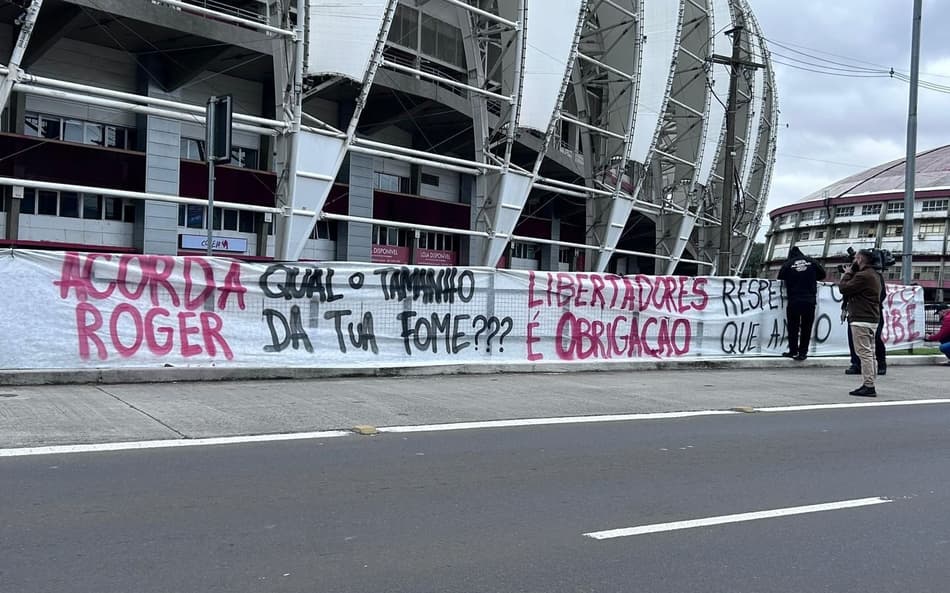 ACORDA
ROGER
QUAL O TAMANHO
DA TUA FOME???
LIBERTADORES
É OBRIGAÇÃO
RESPE
QUE A
DISPONÍVEL
DISPONÍVEL